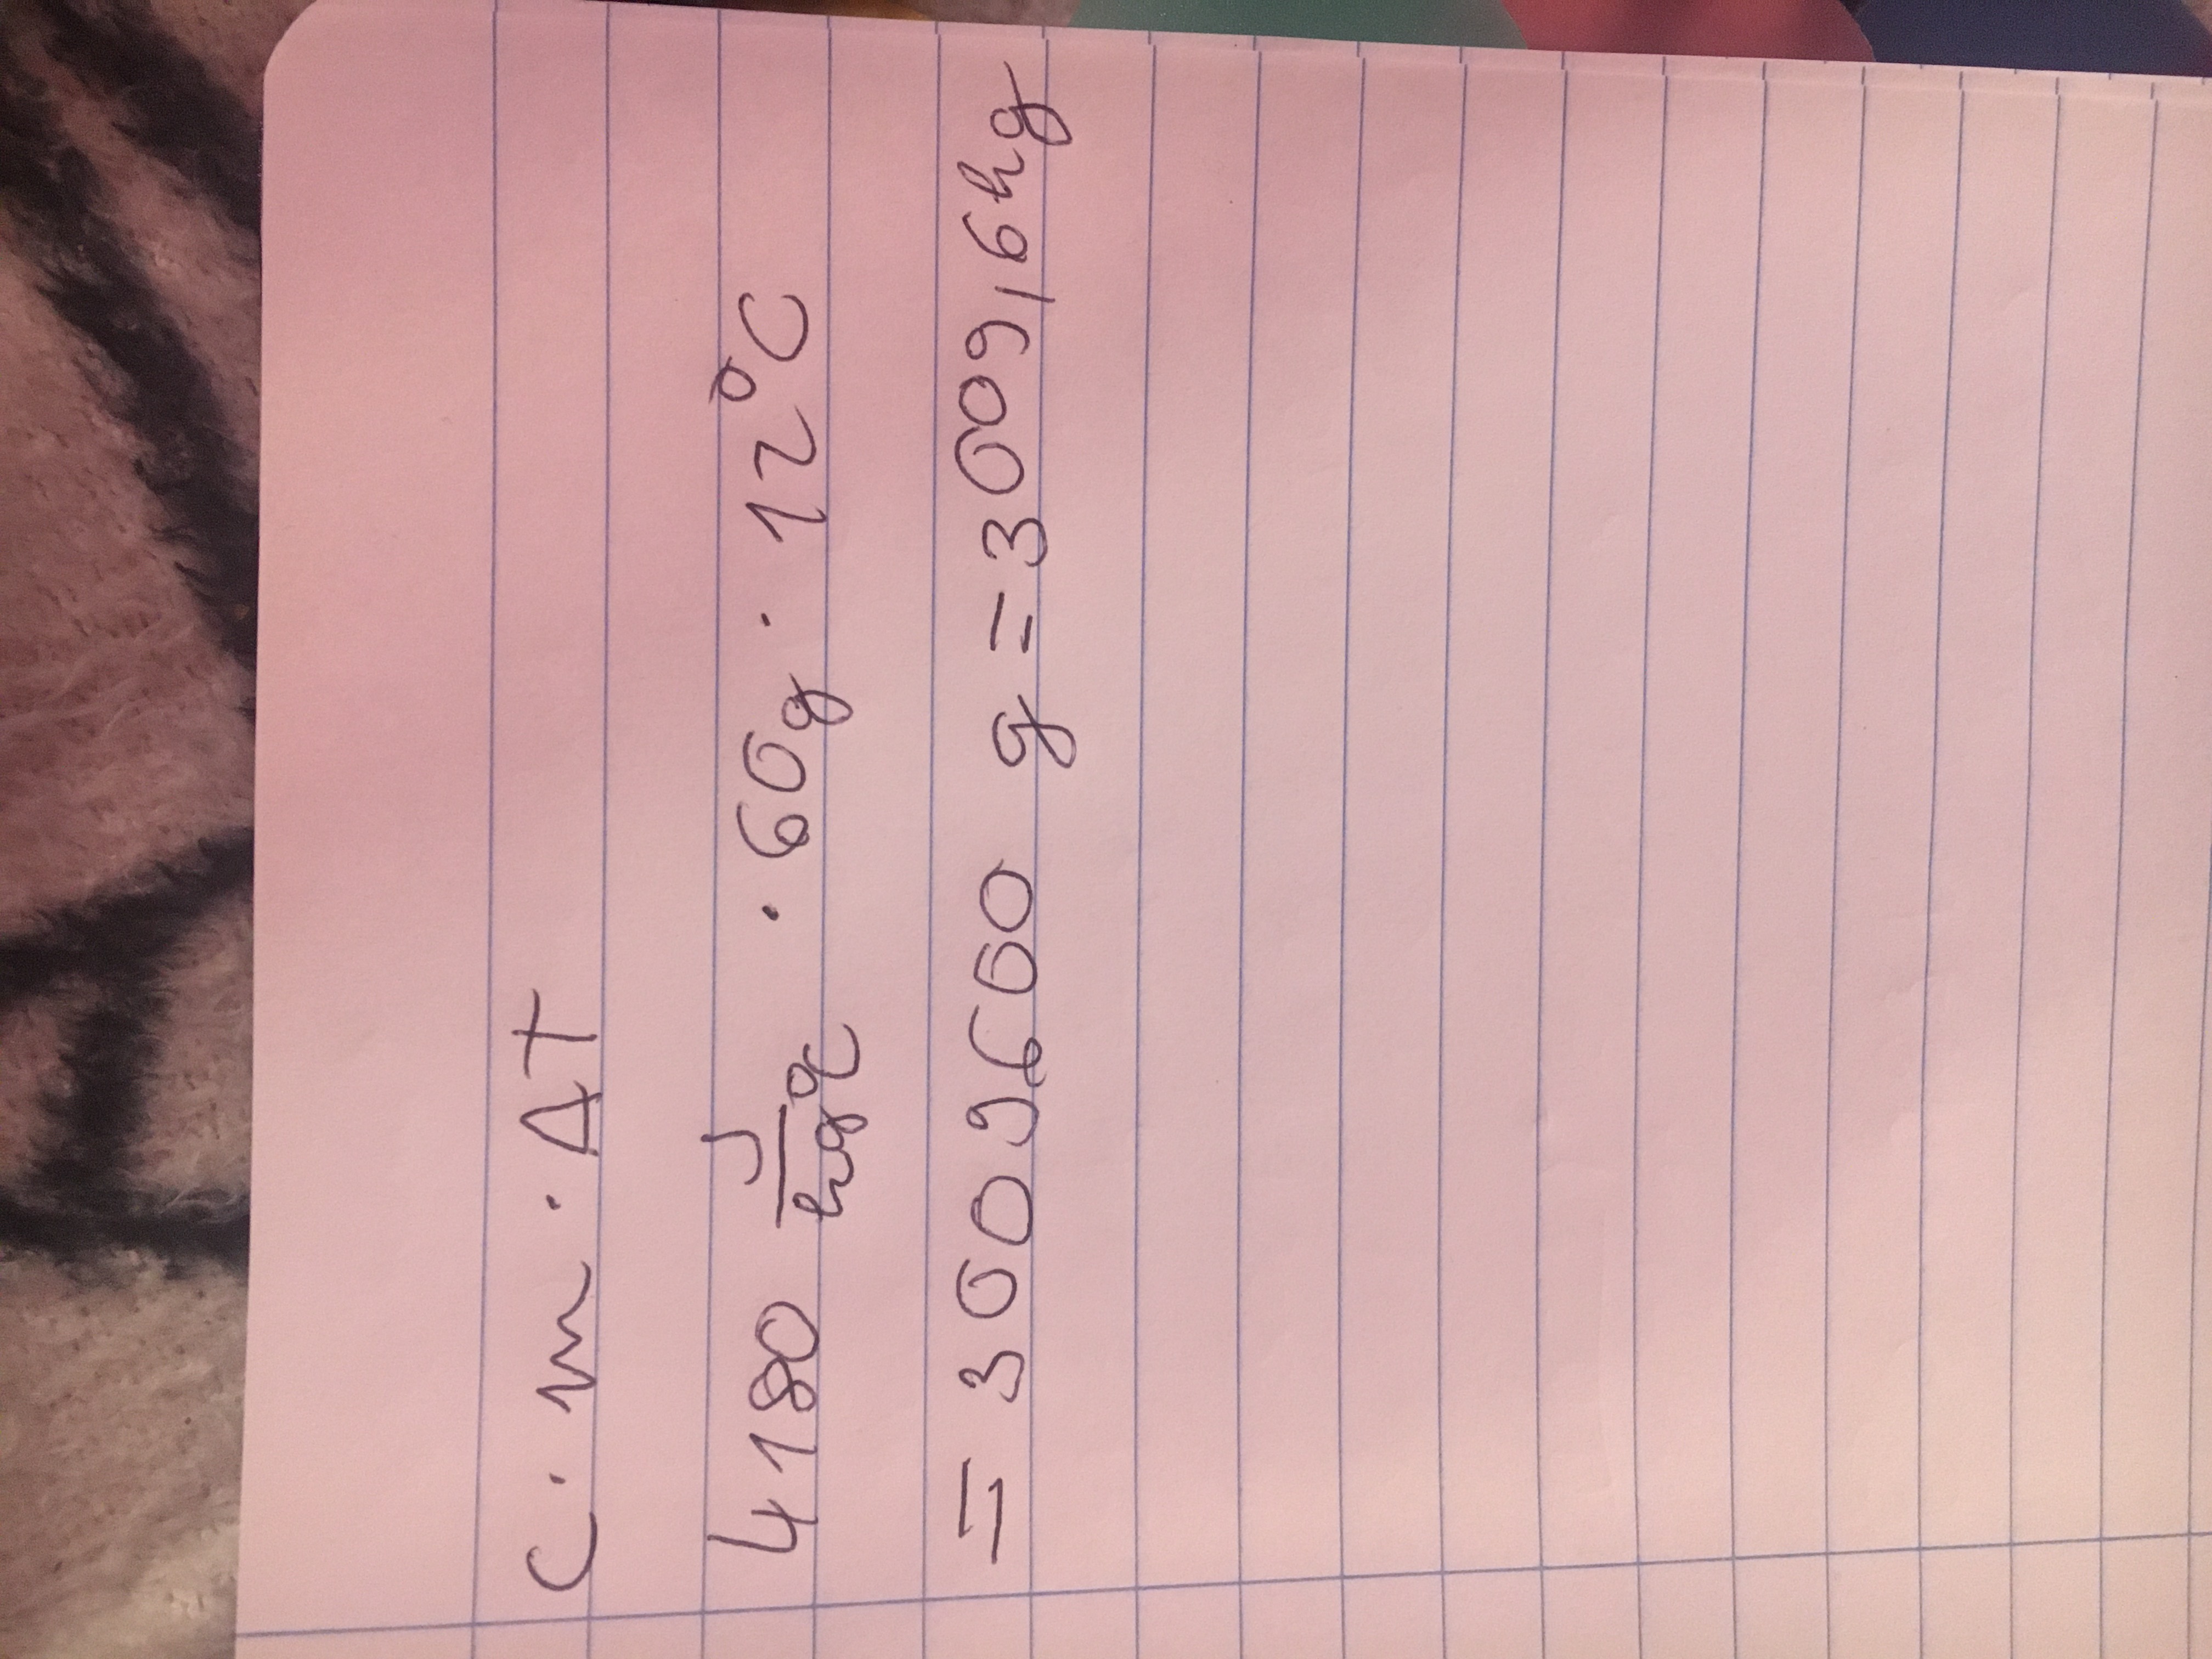 C · m · ΔT
4180 J/kg°C · 60g · 12°C
= 3009600 g = 3009,6kg